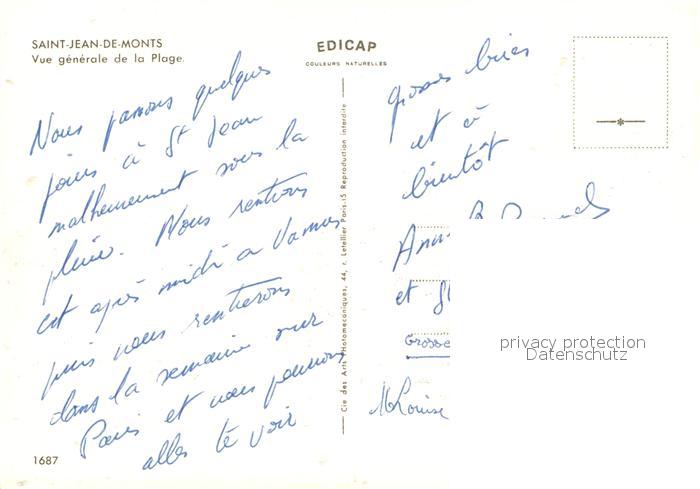 SAINT-JEAN-DE-MONTS
Vue générale de la Plage.
EDICAP
COULEURS NATURELLES
Nous passons quelques
jours à St Jean
malheureusement sous la
pluie. Nous rentrons
cet après midi à Vannes
puis nous rentrerons
dans la semaine sur
Paris et nous pourrons
aller te voir
1687
Cie des Arts Photomecaniques, 44, r. Letellier Paris-15 Reproduction interdite
grosses bises
et à
bientôt
et
Grosse
MLouise
privacy protection
Datenschutz